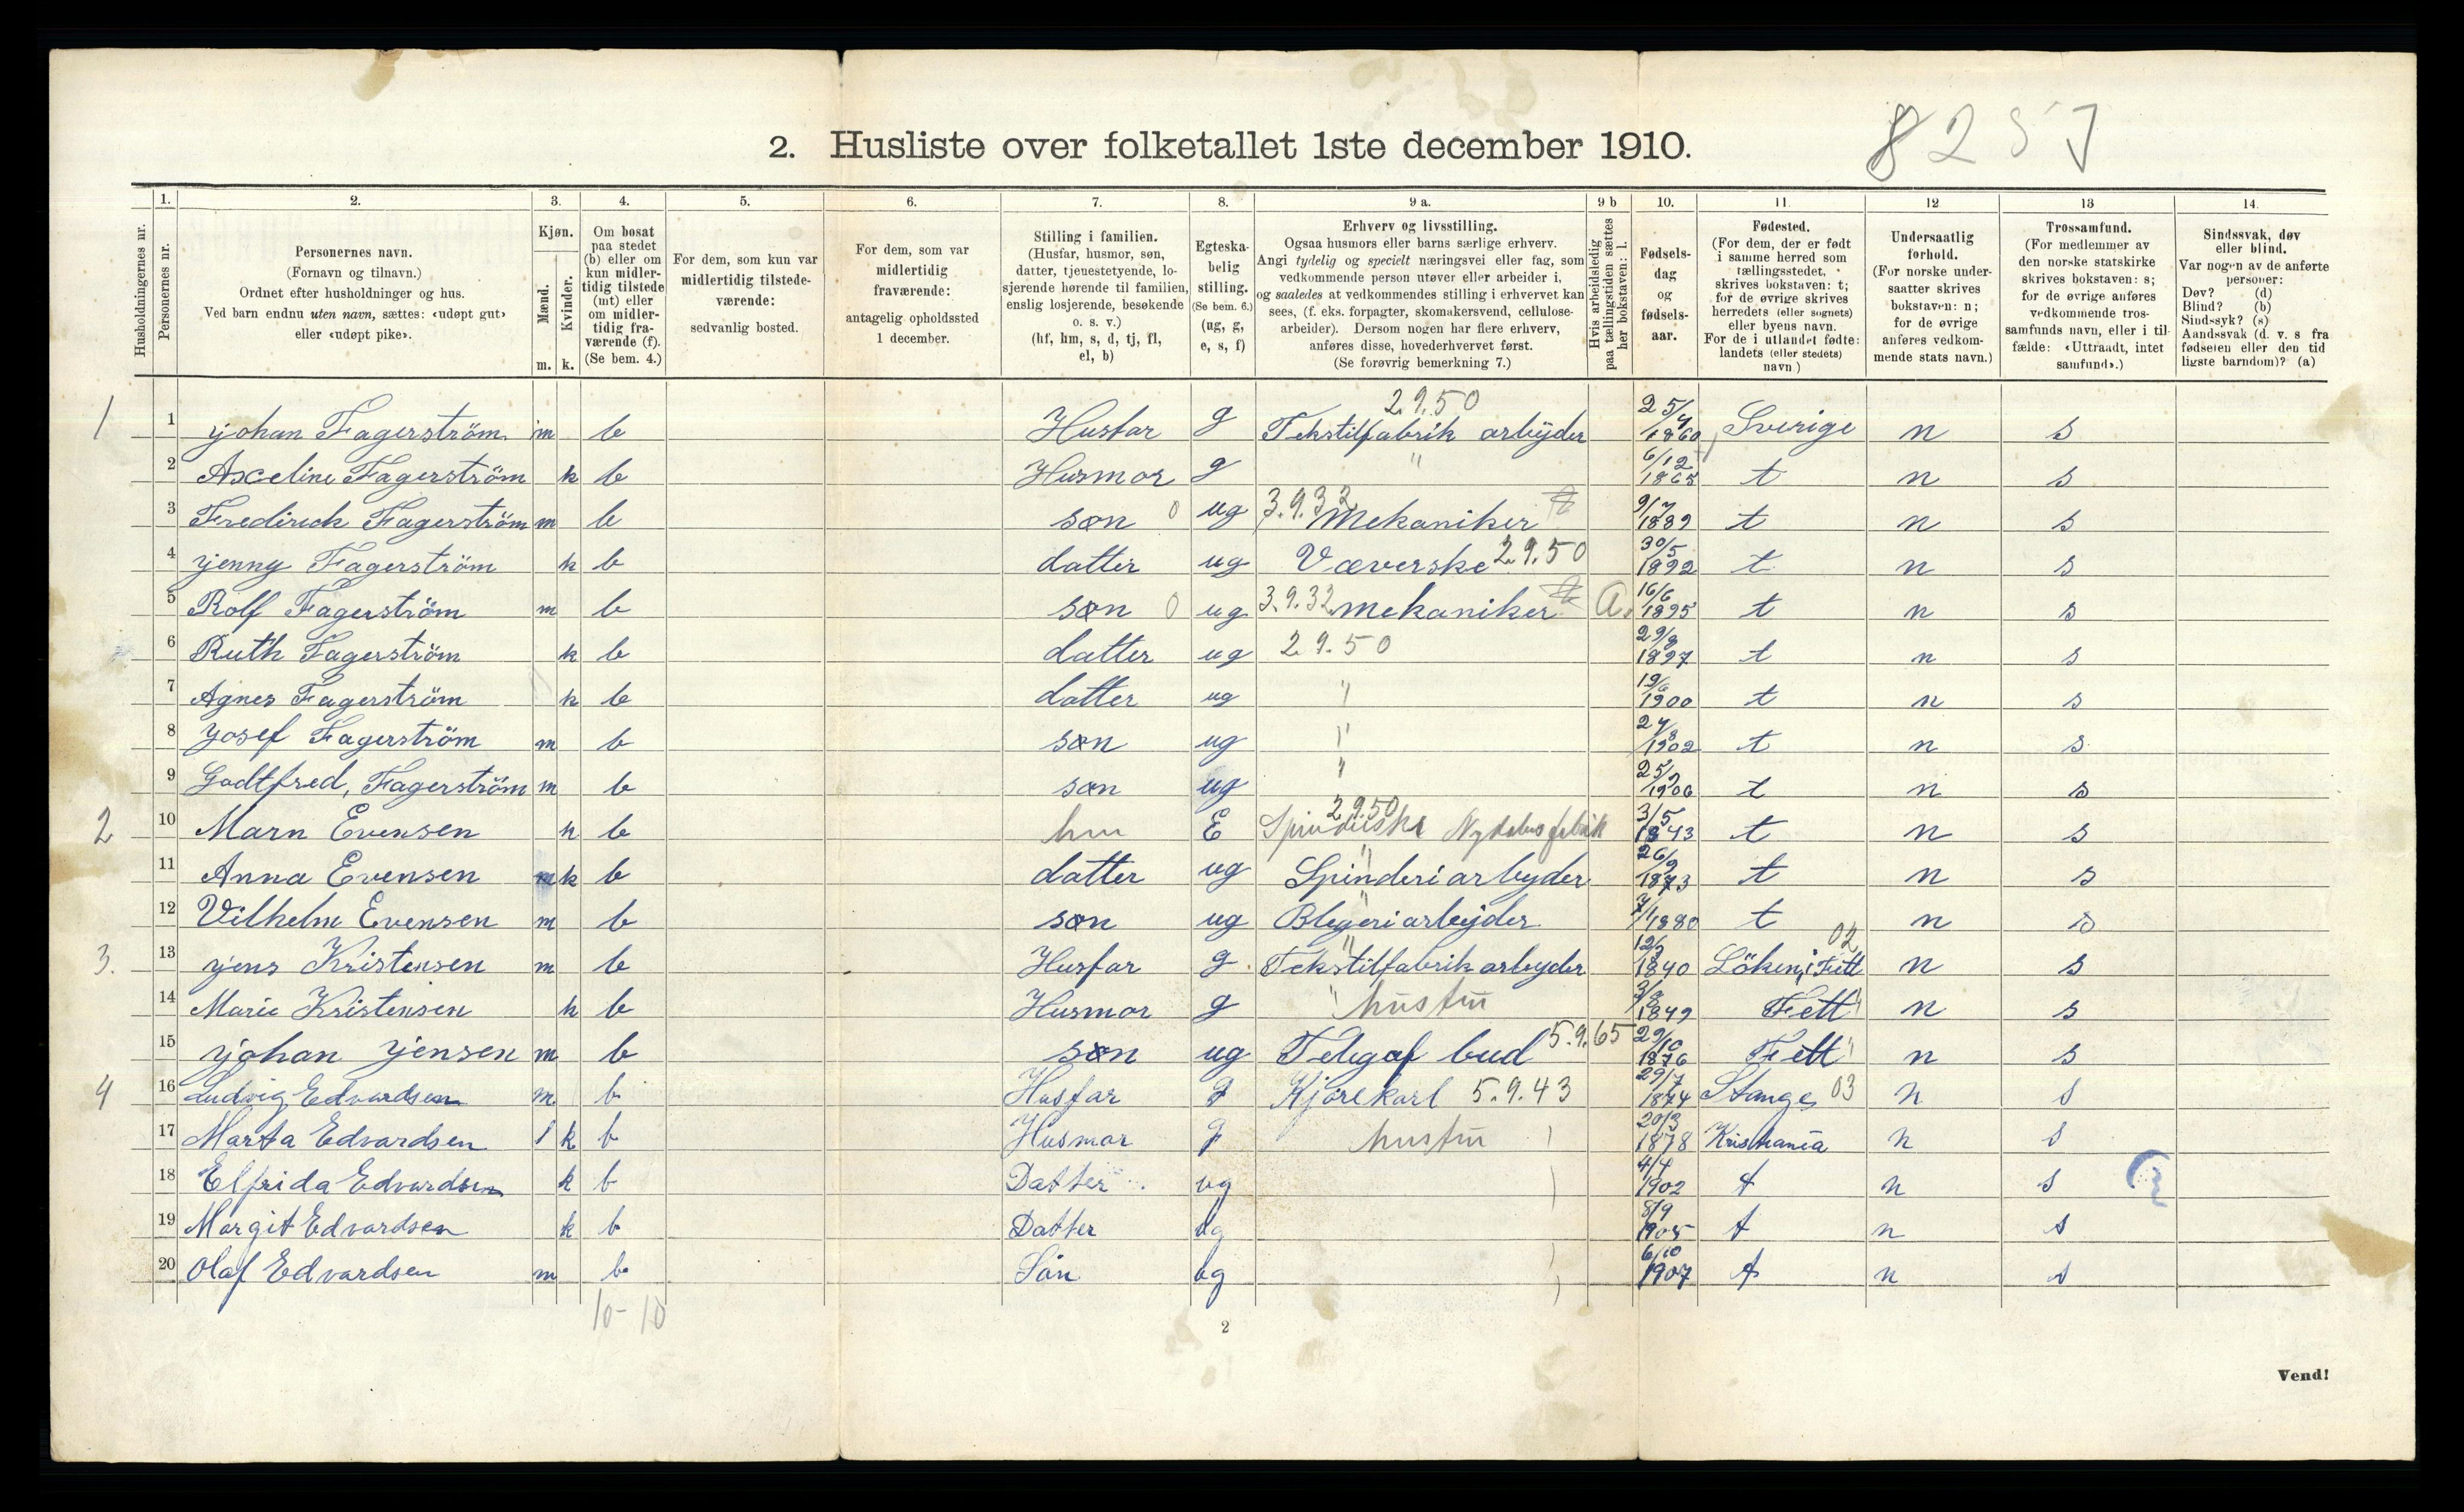 8 2 5 7
2. Husliste over folketallet 1ste december 1910.
Husholdningernes nr.
1. Personernes nr.
2. Personernes navn.
(Fornavn og tilnavn.)
Ordnet efter husholdninger og hus.
Ved barn endnu uten navn, sættes: «udøpt gut»
eller «udøpt pike».
3. Kjøn.
Mænd. m.
Kvinder. k.
4. Om bosat
paa stedet
(b) eller om
kun midler-
tidig tilstede
(mt) eller
om midler-
tidig fra-
værende (f).
(Se bem. 4.)
5. For dem, som kun var
midlertidig tilstede-
værende:
sedvanlig bosted.
6. For dem, som var
midlertidig
fraværende:
antagelig opholdssted
1 december.
7. Stilling i familien.
(Husfar, husmor, søn,
datter, tjenestetyende, lo-
sjerende hørende til familien,
enslig losjerende, besøkende
o. s. v.)
(hf, hm, s, d, tj, fl,
el, b)
8. Egteska-
belig
stilling.
(Se bem. 6.)
(ug, g,
e, s, f)
9 a. Erhverv og livsstilling.
Ogsaa husmors eller barns særlige erhverv.
Angi tydelig og specielt næringsvei eller fag, som
vedkommende person utøver eller arbeider i,
og saaledes at vedkommendes stilling i erhvervet kan
sees, (f. eks. forpagter, skomakersvend, cellulose-
arbeider). Dersom nogen har flere erhverv,
anføres disse, hovederhvervet først.
(Se forøvrig bemerkning 7.)
9 b Hvis arbeidsledig
paa tællingstiden sættes
her bokstaven: l.
10. Fødsels-
dag
og
fødsels-
aar.
11. Fødested.
(For dem, der er født
i samme herred som
tællingsstedet,
skrives bokstaven: t;
for de øvrige skrives
herredets (eller sognets)
eller byens navn.
For de i utlandet fødte:
landets (eller stedets)
navn)
12 Undersaatlig
forhold.
(For norske under-
saatter skrives
bokstaven: n;
for de øvrige
anføres vedkom-
mende stats navn.)
13 Trossamfund.
(For medlemmer av
den norske statskirke
skrives bokstaven: s;
for de øvrige anføres
vedkommende tros-
samfunds navn, eller i til-
fælde: «Uttraadt, intet
samfund».)
14. Sindssvak, døv
eller blind.
Var nogen av de anførte
personer:
Døv? (d)
Blind? (b)
Sindssyk? (s)
Aandssvak (d. v. s fra
fødselen eller den tid
ligste barndom)? (a)
1 1 yohan Fagerström m b Husfar g 2.9.50 Tekstilfabrik arbyder 25/4 1860 Sverige n s
2 Axceline Fagerström k b Husmor g " 6/12 1865 t n s
3 Fredirick Fagerström m b søn 0 ug 3.9.32 Mekaniker 9/7 1889 t n s
4 yenny Fagerström k b datter ug Væverske 2.9.50 30/5 1892 t n s
5 Rolf Fagerström m b søn 0 ug 3.9.32 mekaniker a. 16/6 1895 t n s
6 Ruth Fagerström k b datter ug 2.9.50 29/8 1897 t n s
7 Agnes Fagerström k b datter ug " 19/6 1900 t n s
8 yosef Fagerström m b søn ug " 24/8 1902 t n s
9 Godtfred, Fagerström m b søn ug " 25/2 1906 t n s
2 10 Marn Evensen k b hm E 2950 Spinderske Nydalens fabrik 3/5 1843 t n s
11 Anna Evensen k b datter ug " Spinderiarbyder 26/9 1873 t n s
12 Vilhelm Evensen m b søn ug " Blegeriarbeyder 7/1 1880 t n s
3. 13 yens Kristensen m b Husfar g. " Tekstilfabrik arbyder 12/2 1840 Löken, i Fett 02 n s
14 Marie Kristensen k b Husmor g " hustru 3/8 1849 Fett " n s
15 yohan yensen m b søn ug Telegaf bud 5.9.65 29/10 1876 Fett " n s
4 16 Ludvig Edvardsen m b Husfar g Kjörekarl 5.9.43 29/7 1874 Stange 03 n s
17 Marta Edvardsen k b Husmor g hustru 20/3 1878 Kristiania n s
18 Elfrida Edvardsen k b Datter ug 4/4 1902 t n s
19 Margit Edvardsen k b Datter ug 8/9 1905 t n s
20 Olaf Edvardsen m b Sön ug 6/10 1907 t n s
10 - 10
2
Vend!